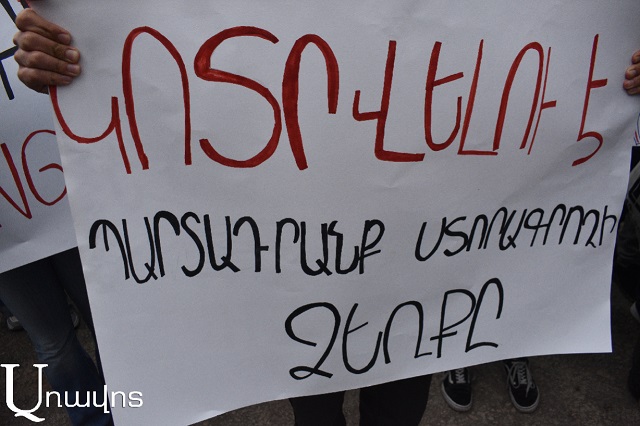 ԿՈՏՐՎԵԼՈՒ Է
ՊԱՐՏԱԴՐԱՆՔ ՍՏՈՐԱԳՐՈՂԻ
ՁԵՌՔԸ
NG
Առավոտ